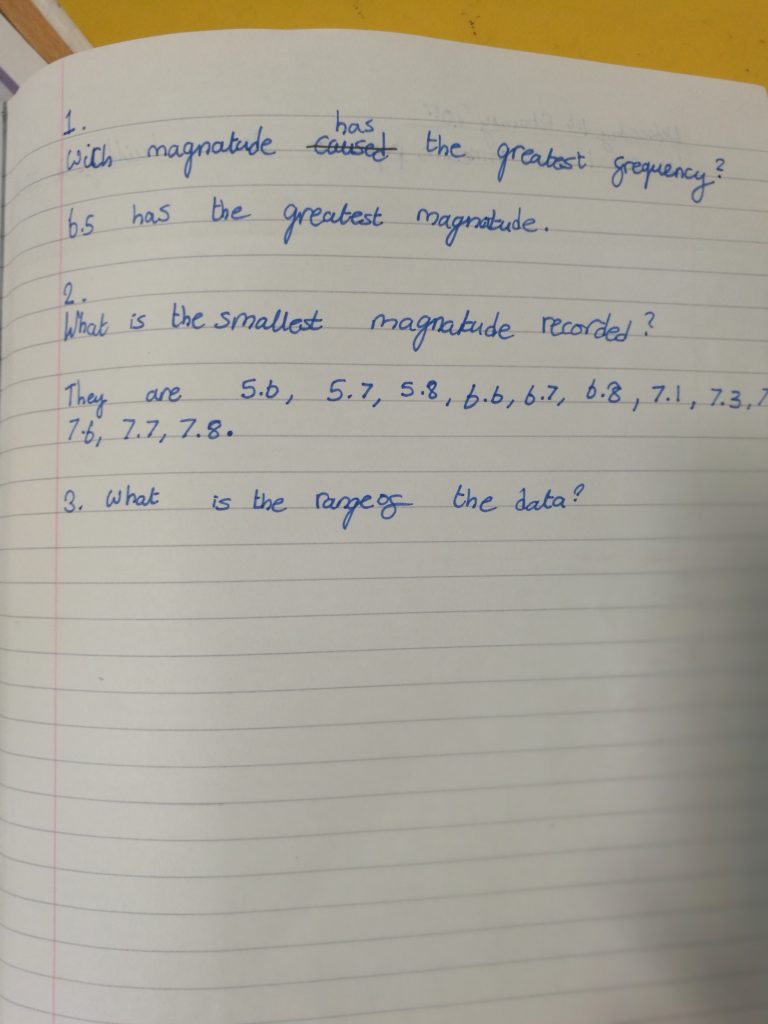 1.
has
Wich magnatude caused the greatest grequency?
6.5 has the greatest magnatude.
2.
What is the smallest magnatude recorded?
They are 5.6, 5.7, 5.8, 6.6, 6.7, 6.8, 7.1, 7.3,
7.6, 7.7, 7.8.
3. What is the range of the data?